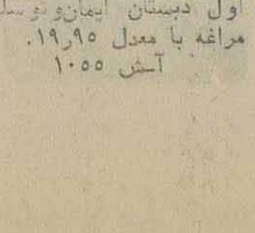 اول دبستان ایمان و توسط
مراغه با معدل ۱۹٫۹۵.
آ‌ـش ۱۰۵۵